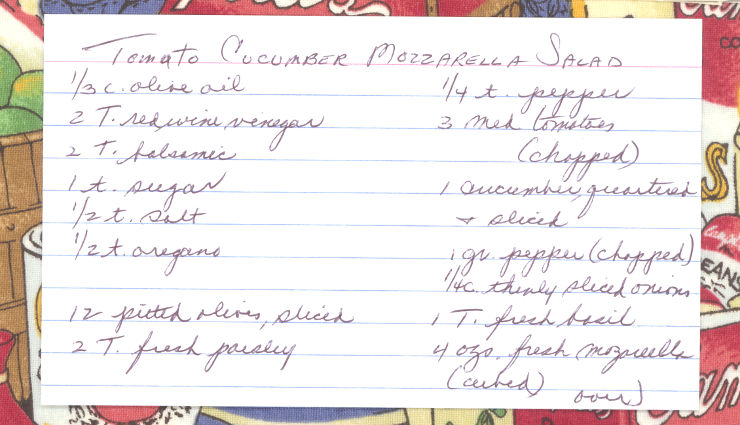 Tomato Cucumber Mozzarella Salad
1/3 c. olive oil
2 T. red wine vinegar
2 T. balsamic
1 t. sugar
1/2 t. salt
1/2 t. oregano
12 pitted olives, sliced
2 T. fresh parsley
1/4 t. pepper
3 med. tomatoes
(chopped)
1 cucumber, quartered
+ sliced
1 gr. pepper (chopped)
1/4 c. thinly sliced onions
1 T. fresh basil
4 ozs. fresh mozzarella
(cubed)
over)